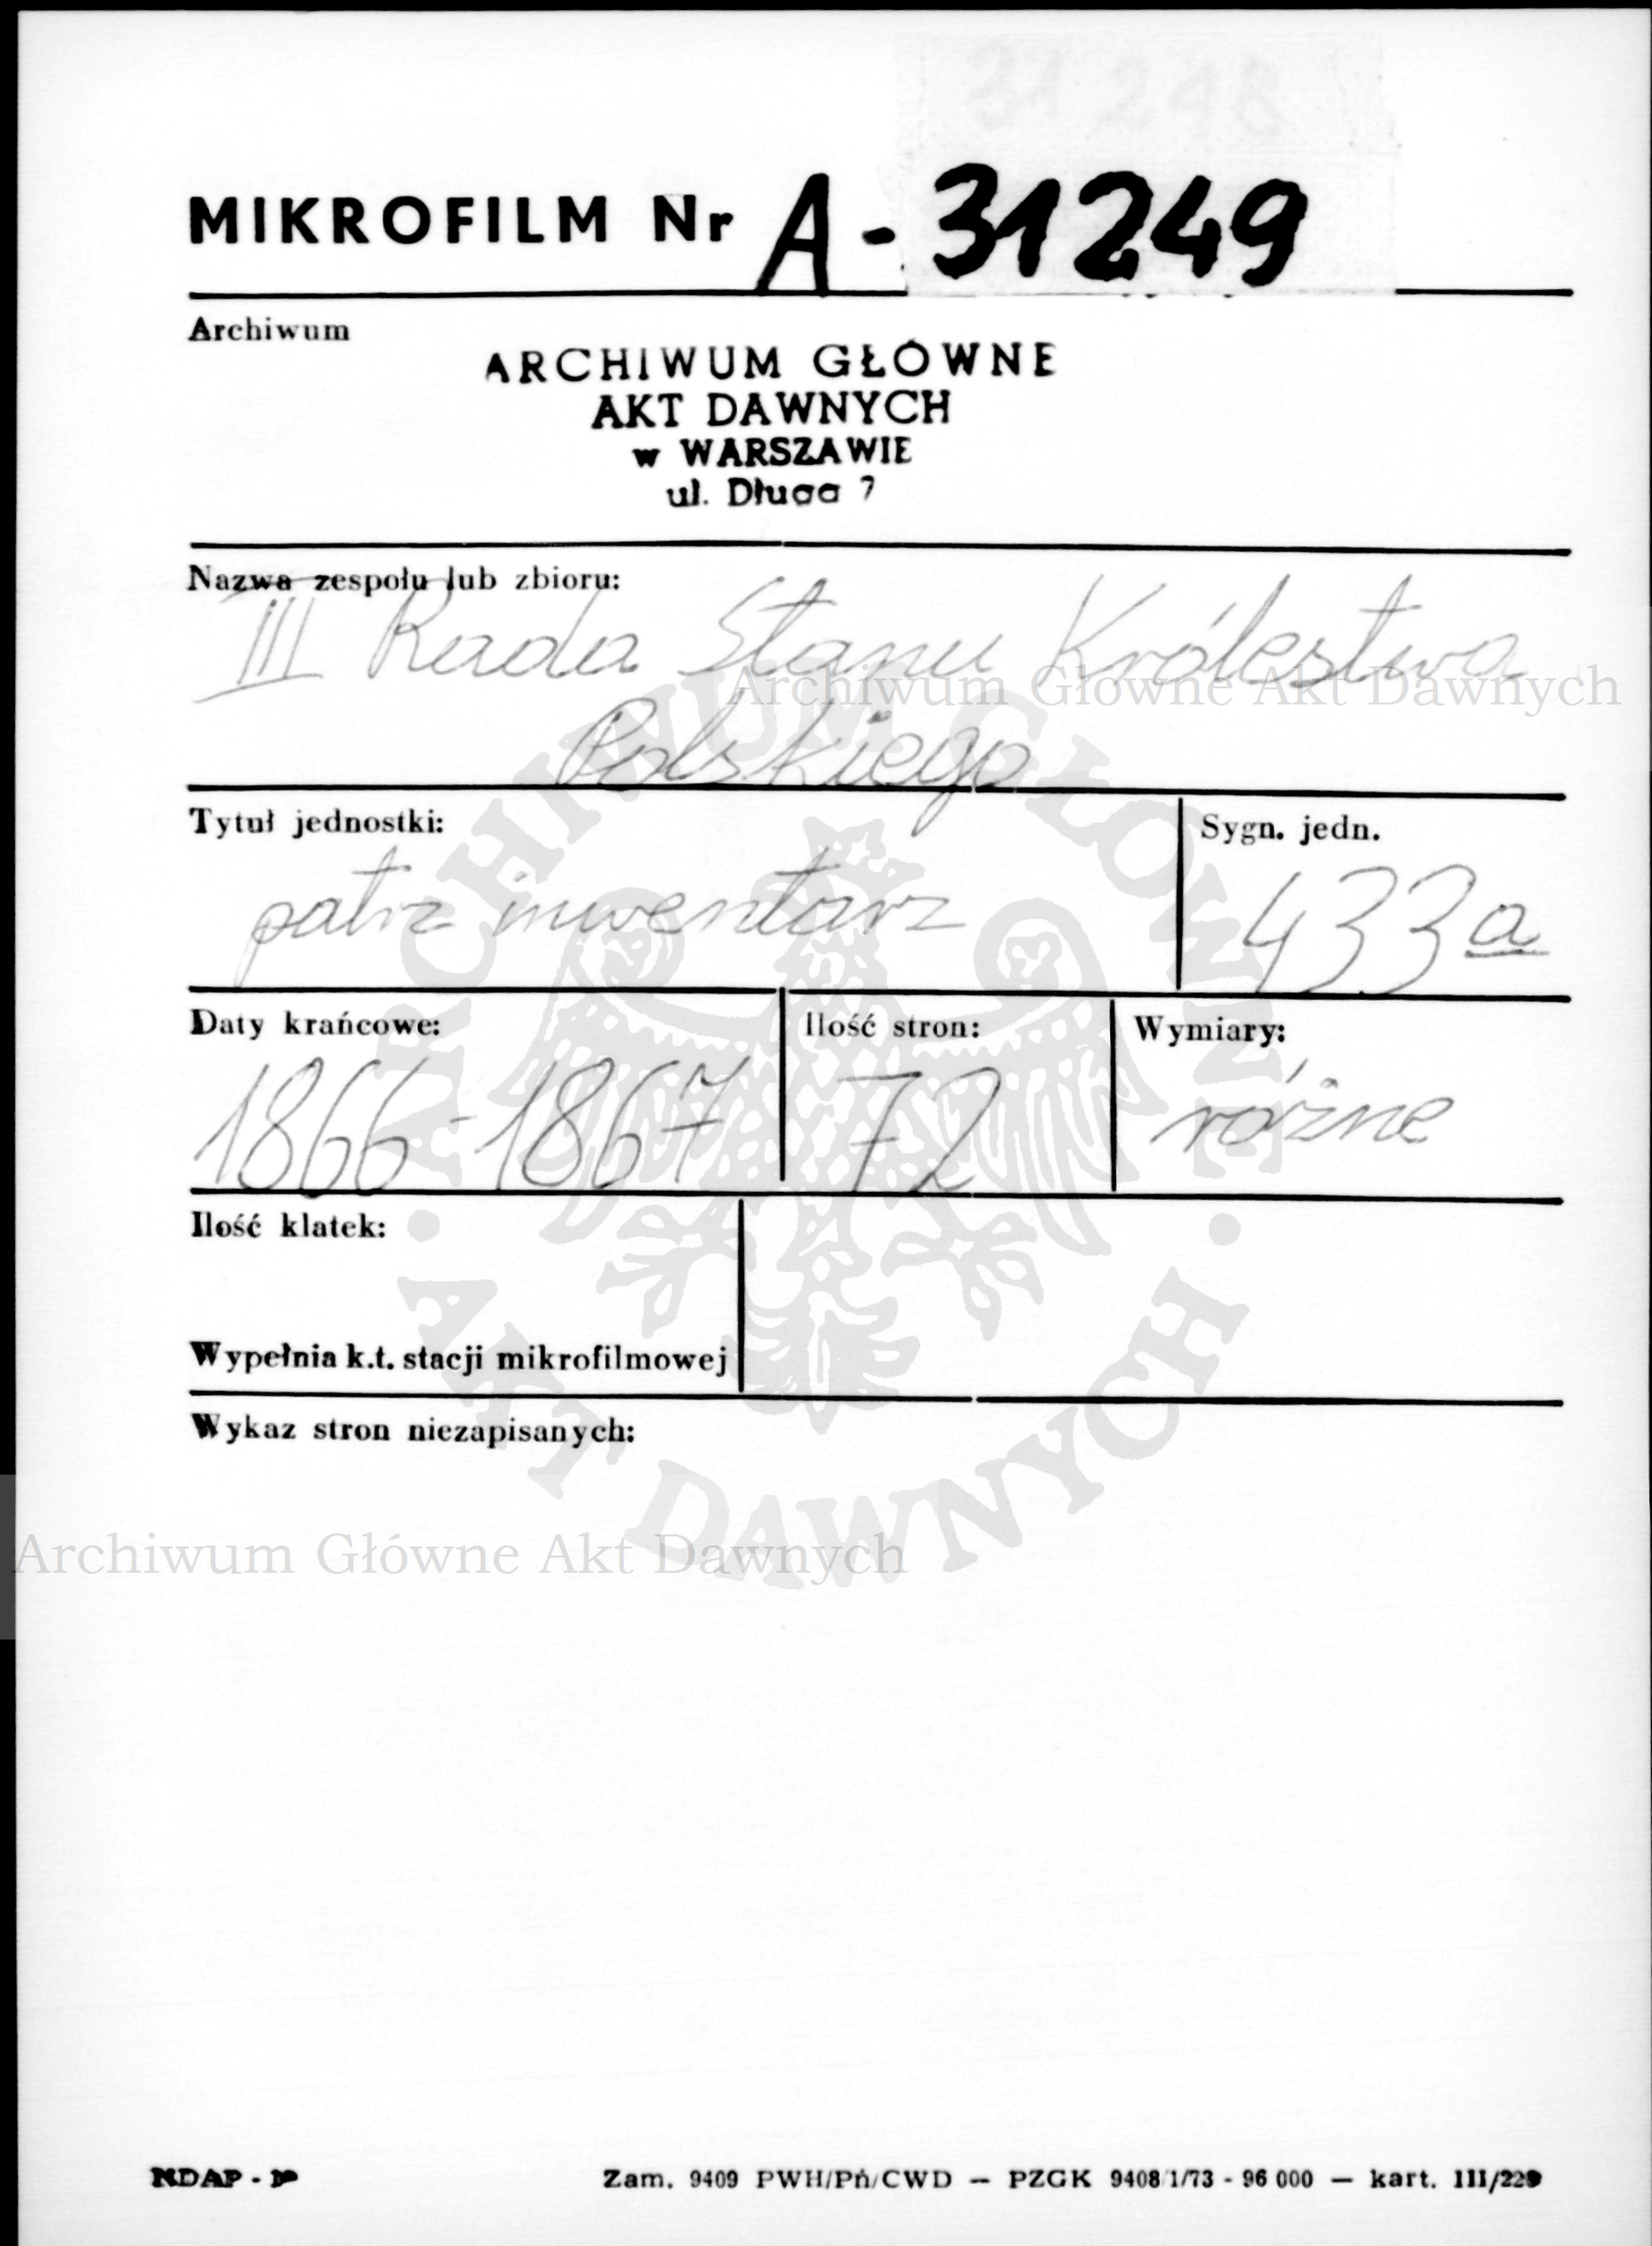 31 248
MIKROFILM Nr A - 31249
Archiwum
ARCHIWUM GŁÓWNE
AKT DAWNYCH
w WARSZAWIE
ul. Długa 7
Nazwa zespołu lub zbioru:
III Rada Stanu Królestwa
Archiwum Główne Akt Dawnych
Polskiego
Tytuł jednostki:
Sygn. jedn.
patrz inwentarz
433a
Daty krańcowe:
Ilość stron:
Wymiary:
1866-1867
72
różne
Ilość klatek:
Wypełnia k.t. stacji mikrofilmowej
Wykaz stron niezapisanych:
ARCHIWUM GŁÓWNE · AKT DAWNYCH ·
Archiwum Główne Akt Dawnych
NDAP -
Zam. 9409 PWH/Pń/CWD — PZGK 9408/1/73 - 96 000 — kart. III/229